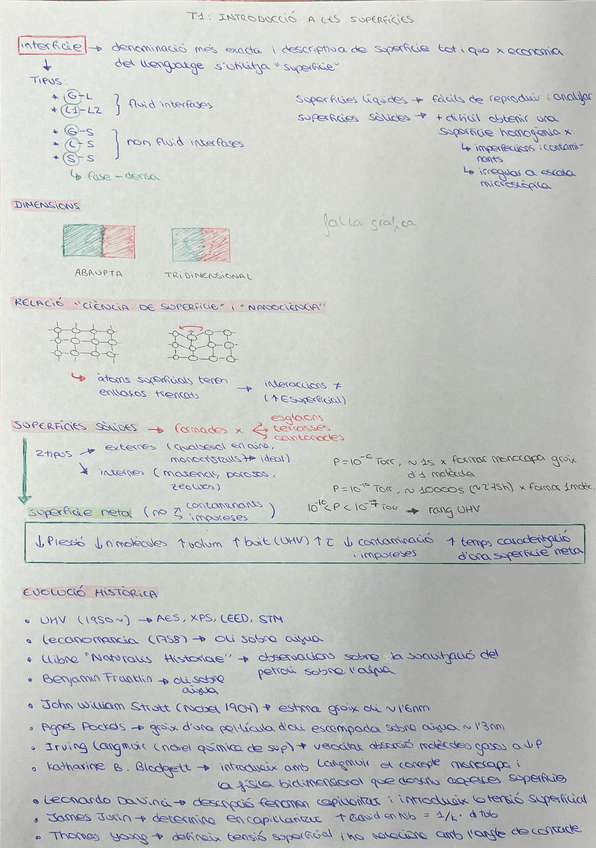 T1: INTRODUCCIÓ A LES SUPERFÍCIES
interfície → denominació més exacta i descriptiva de superfície tot i que x economia
del llenguatge s'utilitza "superfície"
TIPUS:
* G-L
* L1-L2
fluid interfases
* G-S
* L-S
* S-S
non fluid interfases
↳ fase-densa
Superfícies líquides → fàcils de reproduir i analitzar
Superfícies sòlides → + difícil obtenir una
superfície homogènia x.
↳ imperfeccions i contami-
nants
↳ irregular a escala
microscòpica
DIMENSIONS
falta gràfica
ABRUPTA
TRIDIMENSIONAL
RELACIÓ "CIÈNCIA DE SUPERFÍCIE" I "NANOCIÈNCIA"
↳ àtoms superficials tenen
enllaços trencats
→ interaccions ≠
(↑Esuperficial)
SUPERFÍCIES SÒLIDES → formades x
esglaons
terrasses
cantonades
2 tipus → externes (qualsevol en aire,
monocristalls → ideal)
↘ internes (material, porosos,
zeolites)
P=10⁻⁶ Torr, ~ 1s x formar monocapa groix
d'1 molècula
P=10⁻¹⁰ Torr, ~ 10000s (~2'75h) x formar 1 molèc.
10⁻¹⁰ < P < 10⁻⁷ Torr → rang UHV
superfície neta (no contaminants
impureses)
↓ Pressió ↓ n molècules ↑ volum ↑ buit (UHV) ↑ τ ↓ contaminació
i impureses
↑ temps caracterització
d'una superfície neta
EVOLUCIÓ HISTÒRICA
• UHV (1950~) → AES, XPS, LEED, STM
• Lecanomancia (1758) → oli sobre aigua
• Llibre "Naturalis Historiae" → observacions sobre la suavització del
petroli sobre l'aigua
• Benjamin Franklin → oli sobre
aigua
• John William Strutt (Nobel 1904) → estima groix oli ~ 1'6nm
• Agnes Pockels → groix d'una pel·lícula d'oli escampada sobre aigua ~ 1'3nm
• Irving Langmuir (nobel química de sup) → velocitat absorció molècules gasos a ↓P
• Katharine B. Blodgett → introdueix amb Langmuir el concepte monocapa i
la física bidimensional que descriu aquestes superfícies
• Leonardo Da Vinci → descripció fenomen capil·laritat i introdueix la tensió superficial
• James Jurin → determina en capil·laritat ↑ líquid en tub = 1/r · d tub
• Thomas Young → defineix tensió superficial i ho relaciona amb l'angle de contacte